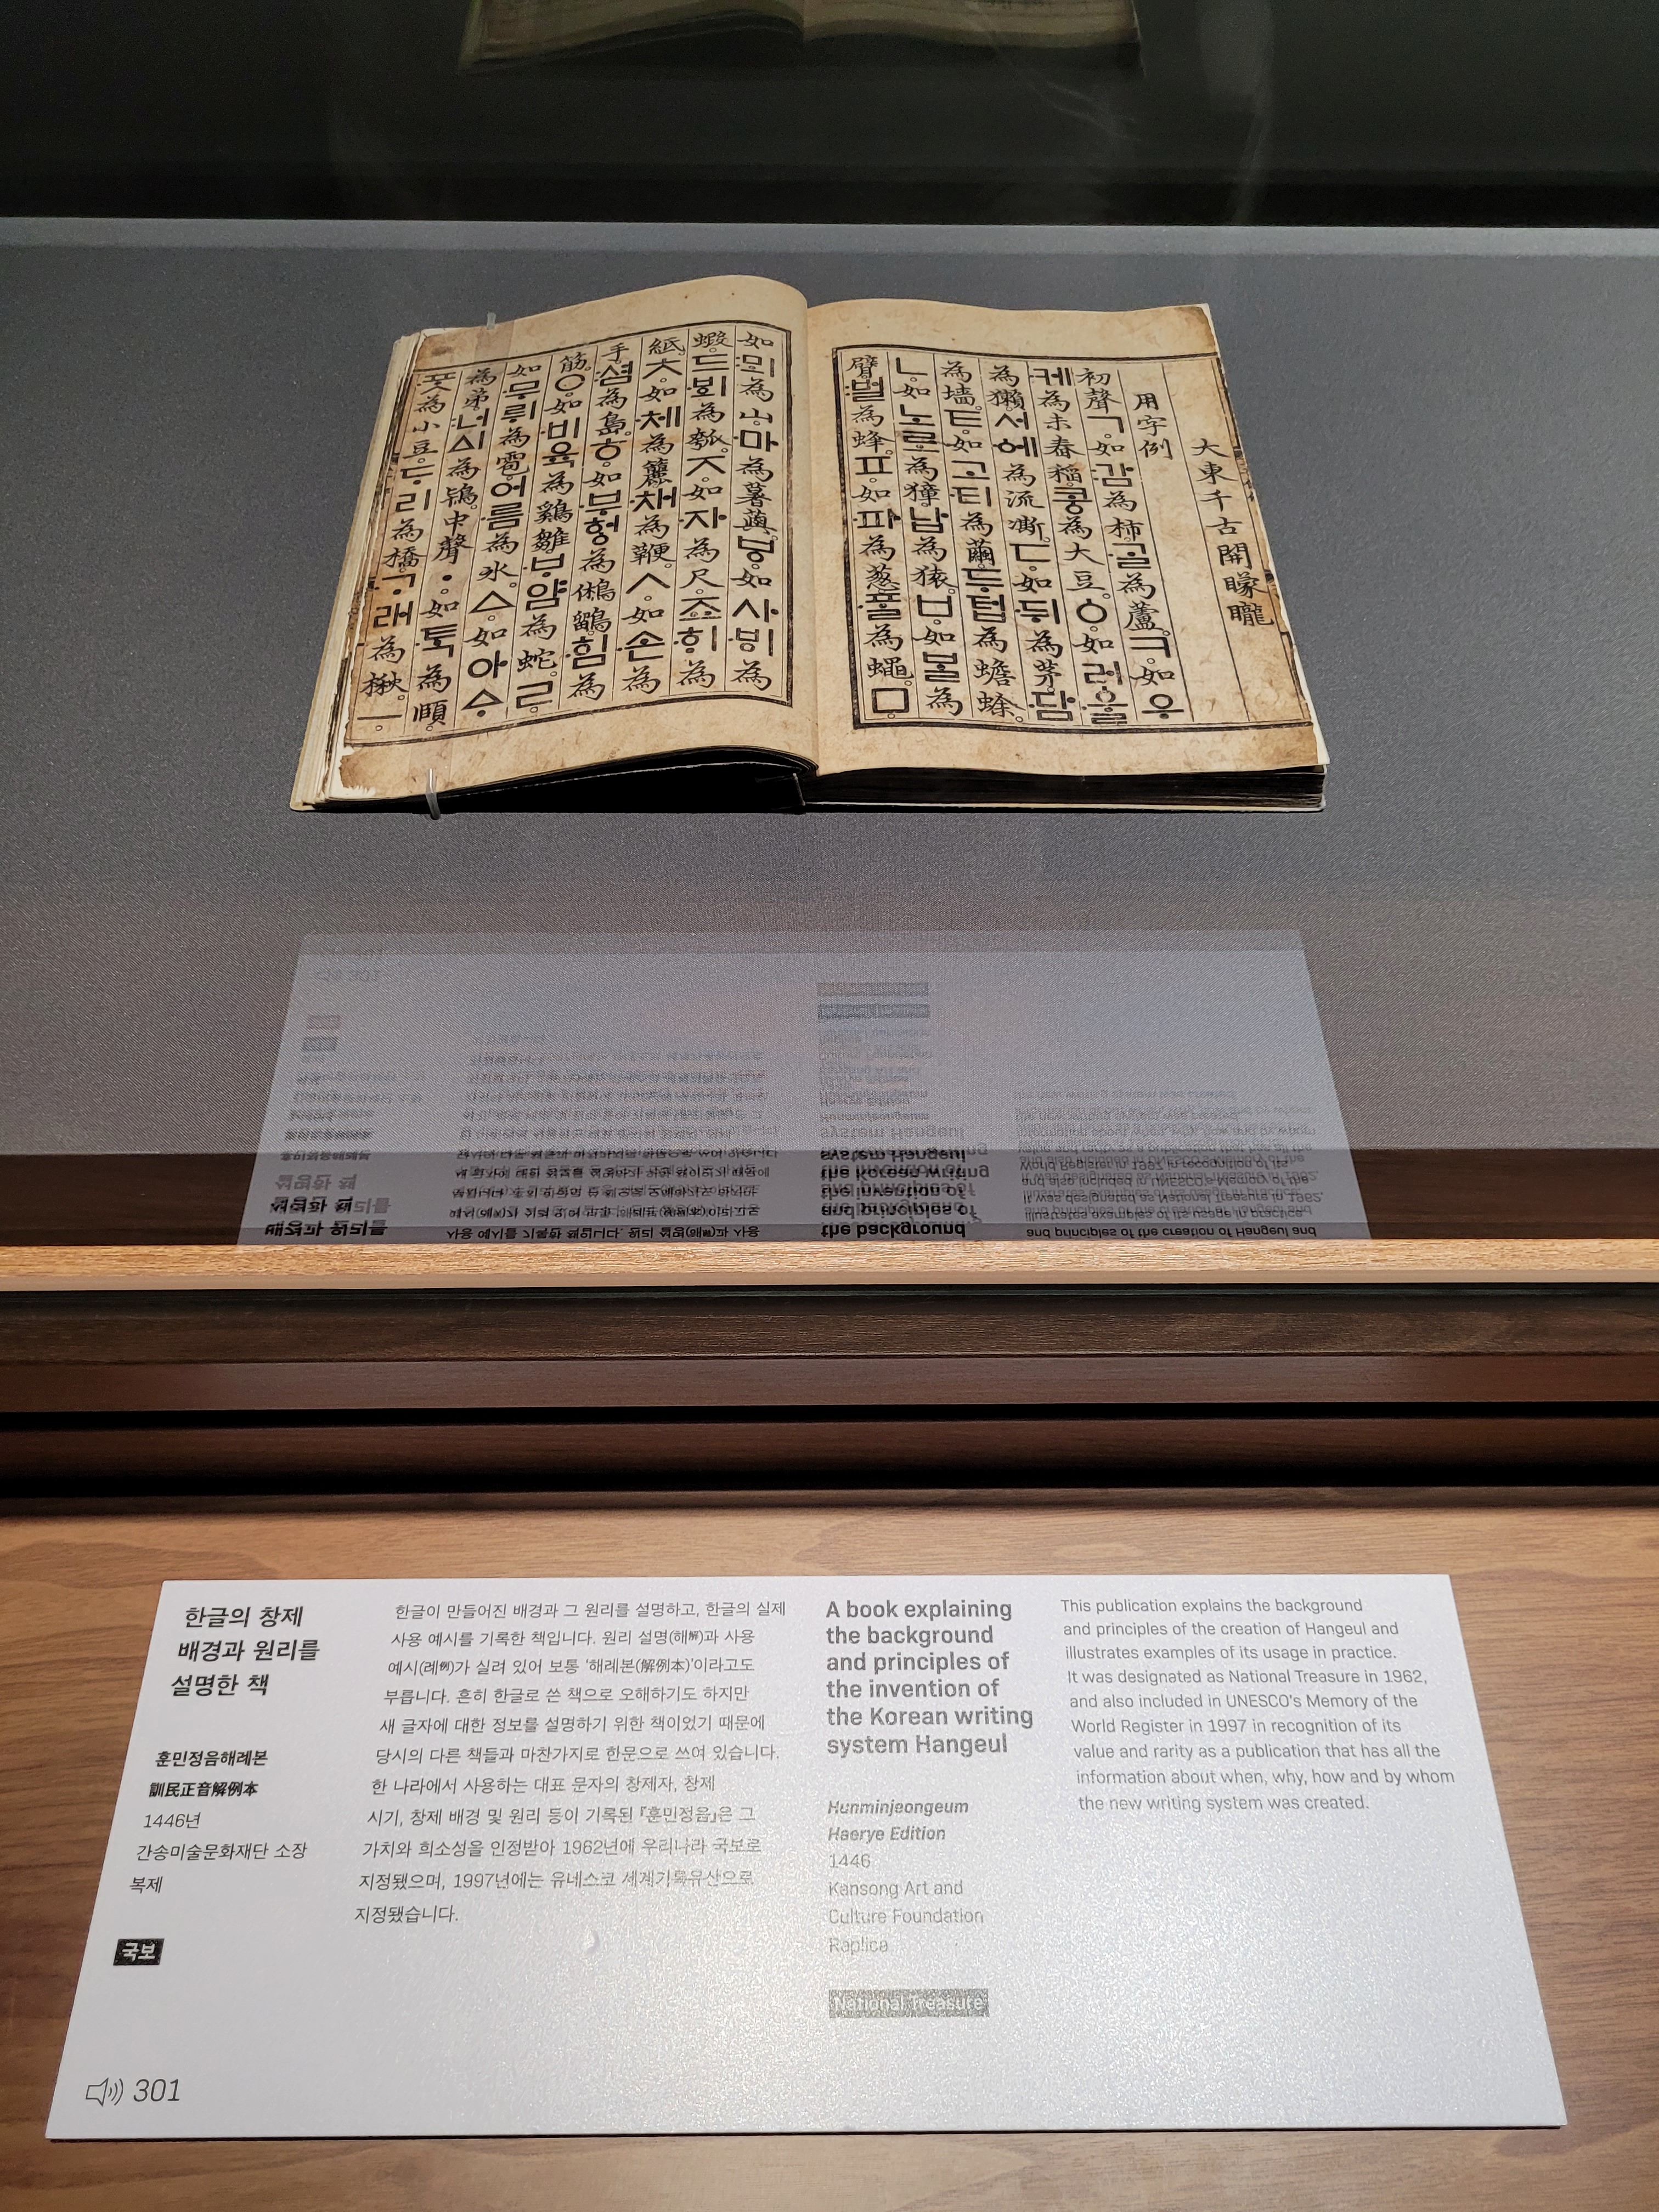 大東千古開矇矓
用字例
初聲ㄱ。如감為柿。ᄀᆞᆯ為蘆。ㅋ。如우
케為未舂稻。콩為大豆。ㆁ。如러울
為獺。서에為流凘。ㄷ。如뒤為茅。담
為墙。ㅌ。如고티為繭。두텁為蟾蜍。
ㄴ。如노로為獐。납為猿。ㅂ。如ᄇᆞᆯ為
臂。벌為蜂。ㅍ。如파為葱。ᄑᆞᆯ為蠅。ㅁ
如뫼為山。마為薯藇。ㅸ。如사ᄫᅵ為
蝦。드ᄫᅴ為瓠。ㅈ。如자為尺。죠ᄒᆡ為
紙。ㅊ。如체為籭。채為鞭。ㅅ。如손為
手。셤為島。ㅎ。如부헝為鵂鶹。힘為
筋。ㅇ。如비육為鷄雛。ᄇᆞ얌為蛇。ㄹ。
如무뤼為雹。어름為氷。ㅿ。如아ᅀᆞ
為弟。너ᅀᅵ為鴇。中聲ㆍ。如ᄐᆞᆨ為頤。
ᄑᆞᆺ為小豆。ᄃᆞ리為橋。ᄀᆞ래為楸。ㅡ。
한글의 창제
배경과 원리를
설명한 책
훈민정음해례본
訓民正音解例本
1446년
간송미술문화재단 소장
복제
국보
301
한글이 만들어진 배경과 그 원리를 설명하고, 한글의 실제
사용 예시를 기록한 책입니다. 원리 설명(해解)과 사용
예시(례例)가 실려 있어 보통 '해례본(解例本)'이라고도
부릅니다. 흔히 한글로 쓴 책으로 오해하기도 하지만
새 글자에 대한 정보를 설명하기 위한 책이었기 때문에
당시의 다른 책들과 마찬가지로 한문으로 쓰여 있습니다.
한 나라에서 사용하는 대표 문자의 창제자, 창제
시기, 창제 배경 및 원리 등이 기록된 『훈민정음』은 그
가치와 희소성을 인정받아 1962년에 우리나라 국보로
지정됐으며, 1997년에는 유네스코 세계기록유산으로
지정됐습니다.
A book explaining
the background
and principles of
the invention of
the Korean writing
system Hangeul
Hunminjeongeum
Haerye Edition
1446
Kansong Art and
Culture Foundation
Replica
National Treasure
This publication explains the background
and principles of the creation of Hangeul and
illustrates examples of its usage in practice.
It was designated as National Treasure in 1962,
and also included in UNESCO's Memory of the
World Register in 1997 in recognition of its
value and rarity as a publication that has all the
information about when, why, how and by whom
the new writing system was created.